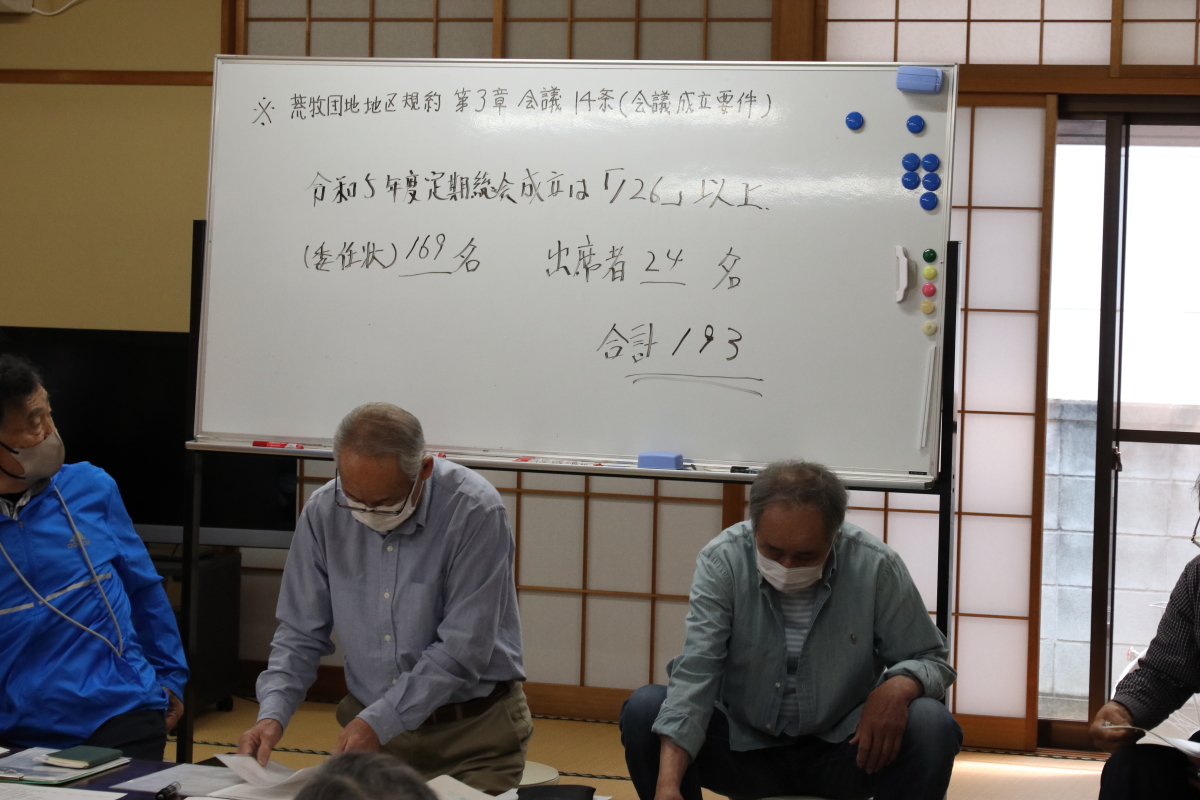 ※ 荒牧団地地区規約 第3章 会議 14条(会議成立要件)
令和5年度定期総会成立は「126」以上.
(委任状)169名 出席者 24 名
合計 193